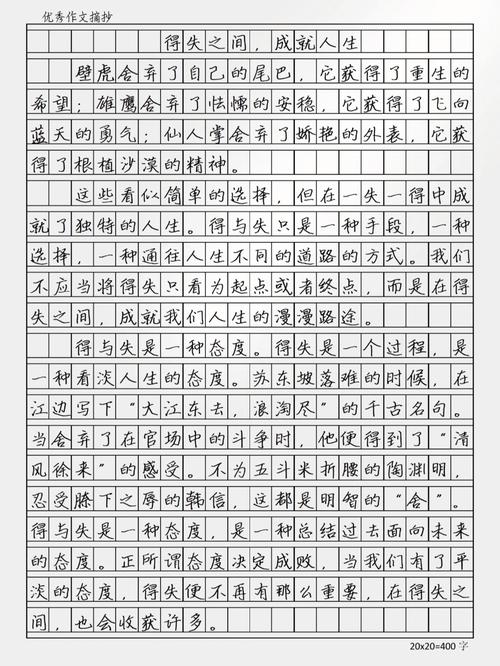 优秀作文摘抄
得失之间，成就人生
壁虎舍弃了自己的尾巴，它获得了重生的
希望；雄鹰舍弃了怯懦的安稳，它获得了飞向
蓝天的勇气；仙人掌舍弃了娇艳的外表，它获
得了根植沙漠的精神。
这些看似简单的选择，但在一失一得中成
就了独特的人生。得与失只是一种手段，一种
选择，一种通往人生不同的道路的方式。我们
不应当将得失只看为起点或者终点，而是在得
失之间，成就我们人生的漫漫路途。
得与失是一种态度。得失是一个过程，是
一种看淡人生的态度。苏东坡落难的时候，在
江边写下“大江东去，浪淘尽”的千古名句。
当舍弃了在官场中的斗争时，他便得到了“清
风徐来”的感受。不为五斗米折腰的陶渊明，
忍受胯下之辱的韩信，这都是明智的“舍”。
得与失是一种态度，是一种总结过去面向未来
的态度。正所谓态度决定成败，当我们有了平
淡的态度，得失便不再有那么重要，在得失之
间，也会收获许多。
20x20=400 字